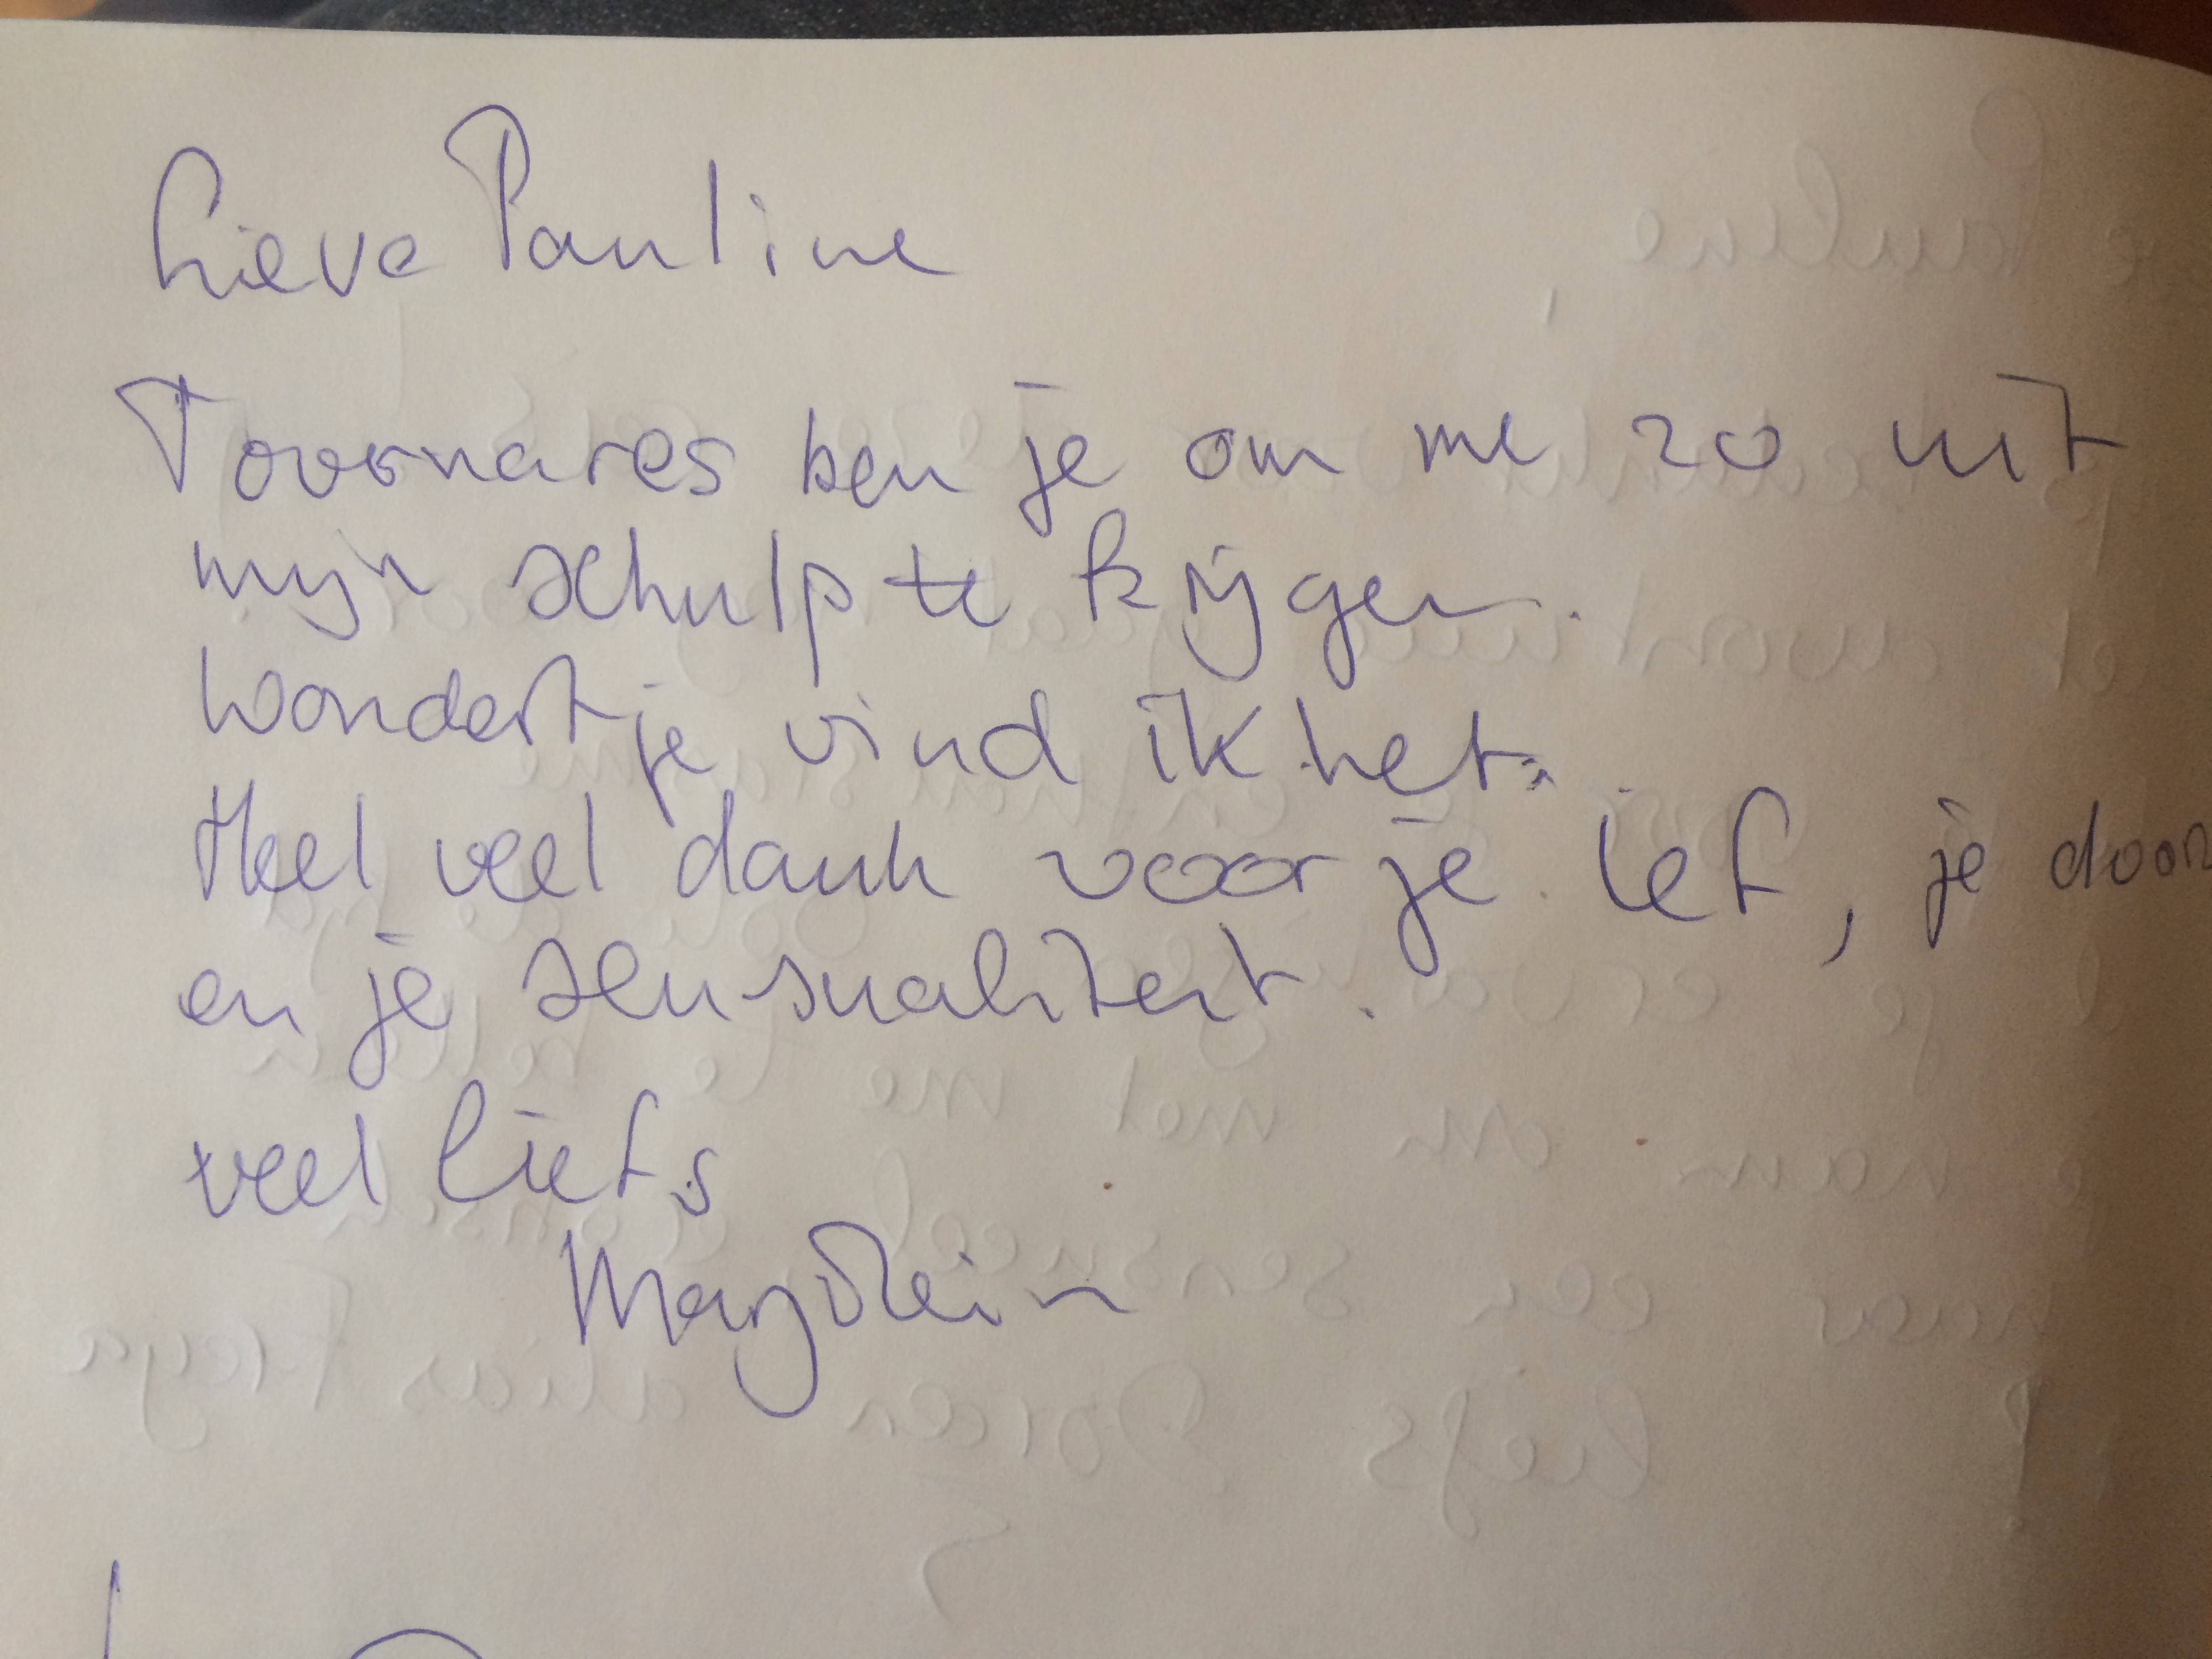 Lieve Pauline
Tovernares ben je om me zo uit
mijn schulp te krijgen.
Wondertje vind ik het.
Heel veel dank voor je lef, je door
en je sensualiteit.
veel liefs
Marjolein